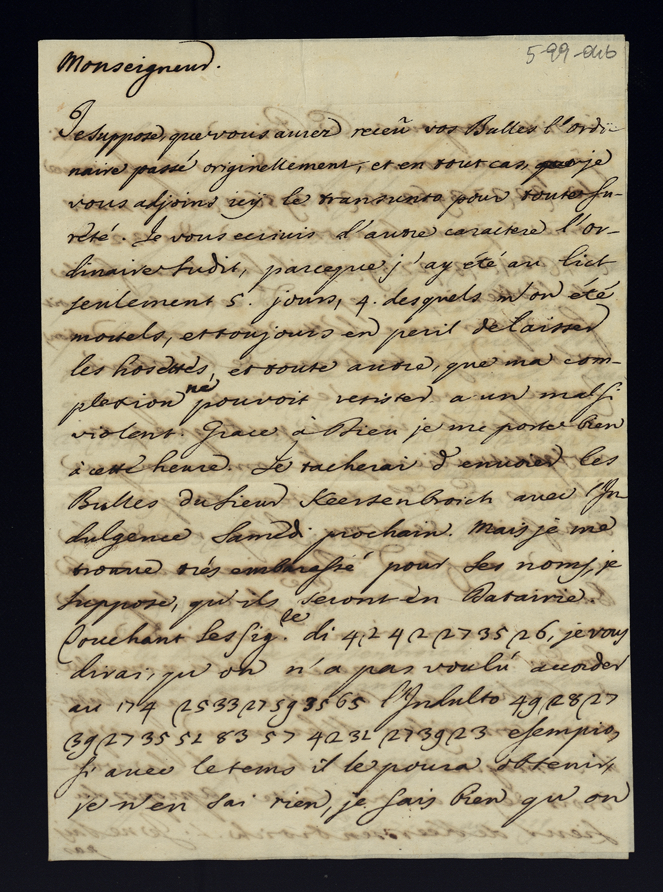 Monseigneur.
5-99-
Je suppose, que vous aurez receû vos Bulles l'ordi-
naire passé originellement, et en tout cas, je
vous adjoins icy le transunto pour toute su-
reté. Je vous ecrivis d'autre caractere l'or-
dinaire sudit, parceque j'ay été au lict
seulement 5. jours, 4. desquels m'on été
mortels, et toujours en peril de laisser
les hosettes, et toute autre, que ma com-
plexion ne pouvoit resister a un mal si
violent. Grace à Dieu je me porte bien
à cette heure. Je tacherai d'envoier les
Bulles du Sieur Keersenbroich avec l'In
dulgence Samedi prochain. Mais je me
trouve trés embarassé pour ses noms, je
suppose, qu'ils seront en Datairie.
Touchant les Sig.re di 42 42 27 35 26, je vous
dirai, qu'on n'a pas voulû accorder
au 174 25 33 27 59 35 65 l'Indulto 49 28 27
39 27 35 52 83 57 42 32 27 39 23 esempio,
si avec le tems il le poura obtenir,
je n'en sai rien, je sais bien qu'on
pas